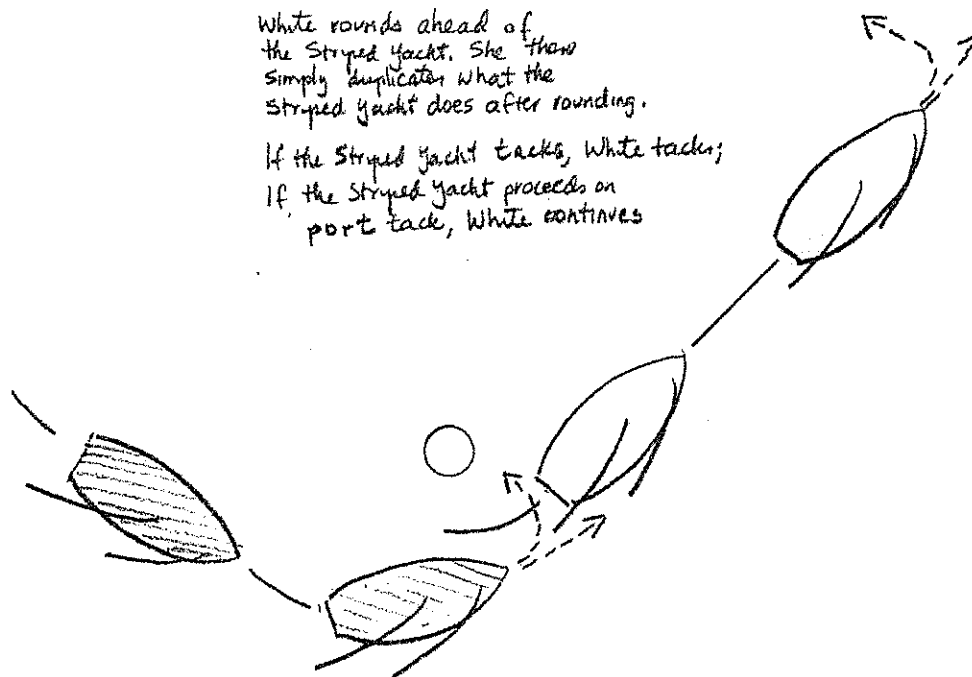 White rounds ahead of
the Striped Yacht. She then
simply duplicates what the
Striped Yacht does after rounding.
If the Striped Yacht tacks, White tacks;
If the Striped Yacht proceeds on
port tack, White continues